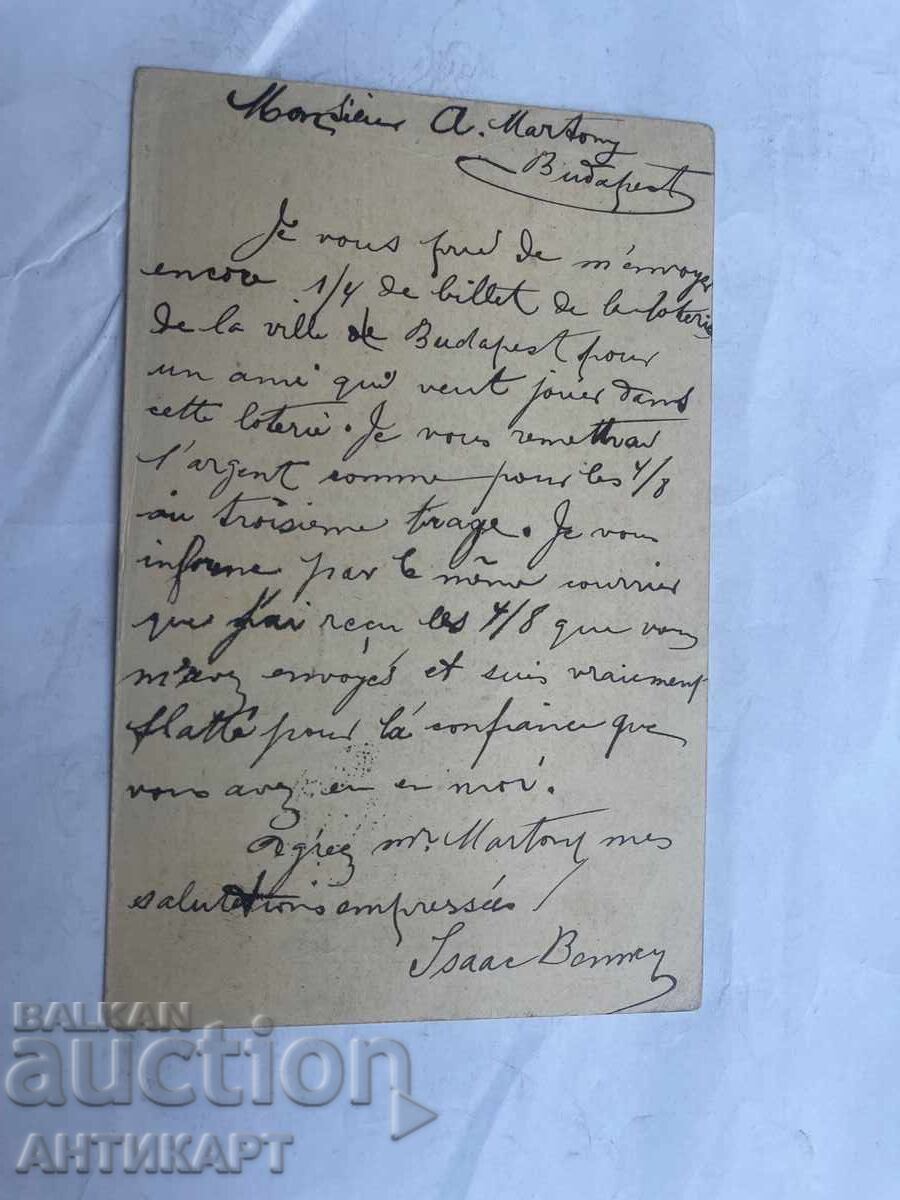 Monsieur A. Martony
Budapest
Je vous prie de m'envoyer
encore 1/4 de billet de la loterie
de la ville de Budapest pour
un ami qui veut jouer dans
cette loterie. Je vous remettrai
l'argent comme pour les 4/8
au troisième tirage. Je vous
informe par le même courrier
que j'ai reçu les 4/8 que vous
m'avez envoyés et suis vraiment
flatté pour la confiance que
vous avez eu en moi.
Agréez mr. Martony mes
salutations empressées
Isaac
BALKAN
auction
АНТИКАРТ